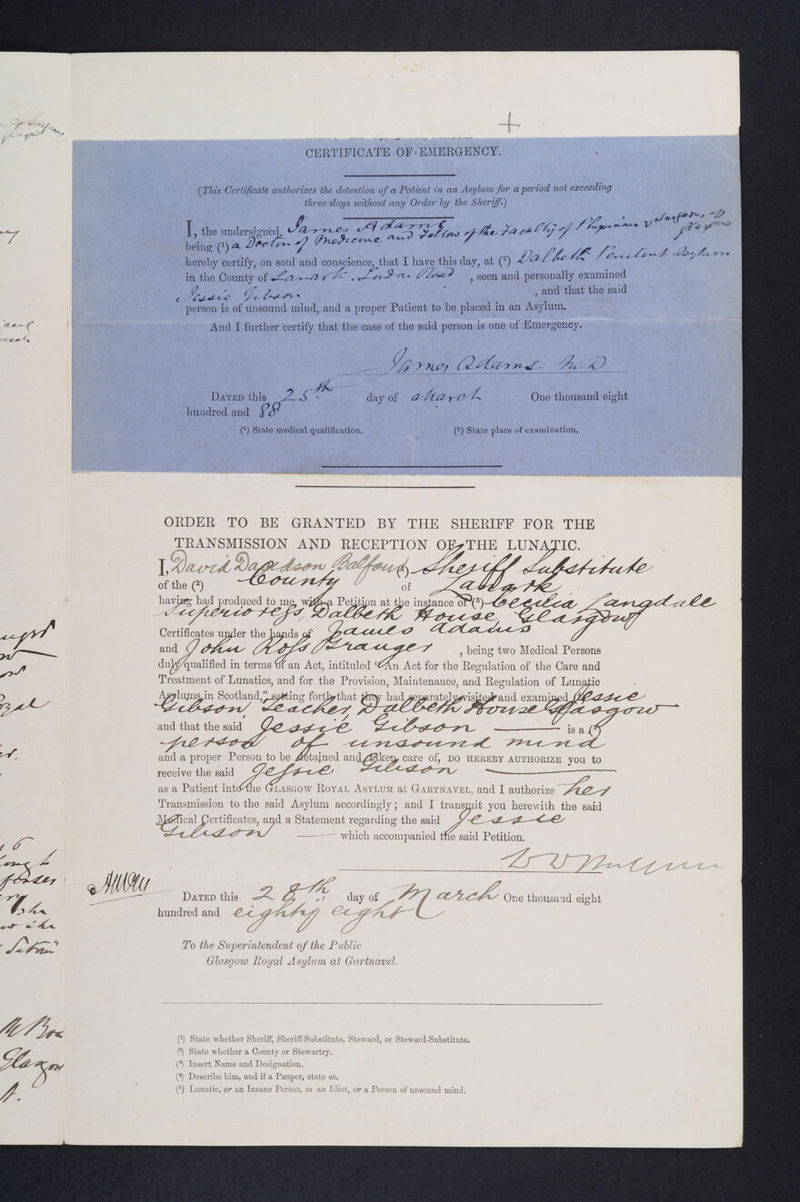 +
CERTIFICATE OF EMERGENCY.
(This Certificate authorizes the detention of a Patient in an Asylum for a period not exceeding
three days without any Order by the Sheriff.)
I, the undersigned, James Adams
being (¹) a Doctor of Medicine and Fellow of the Faculty of Physicians & Surgeons Glasgow
hereby certify, on soul and conscience, that I have this day, at (²) Dalbeth Penitent Asylum
in the County of Lanark. London Road, seen and personally examined
Jessie Gibson, and that the said
person is of unsound mind, and a proper Patient to be placed in an Asylum.
And I further certify that the case of the said person is one of Emergency.
James Adams M D
DATED this 25th day of March One thousand eight
hundred and 88
(¹) State medical qualification. (²) State place of examination.
ORDER TO BE GRANTED BY THE SHERIFF FOR THE
TRANSMISSION AND RECEPTION OF THE LUNATIC.
I, David Davidson Balfour (¹) Sheriff Substitute
of the (²) County of Lanark
having had produced to me, with a Petition at the instance of (³) Cecilia Langdale
Superioress, Dalbeth House, Glasgow
Certificates under the hands of James Adams
and John Ross Granger, being two Medical Persons
duly qualified in terms of an Act, intituled "An Act for the Regulation of the Care and
Treatment of Lunatics, and for the Provision, Maintenance, and Regulation of Lunatic
Asylums in Scotland," setting forth that they had separately visited and examined Jessie
Gibson, Teacher, Dalbeth House Glasgow
and that the said Jessie Gibson is a (⁵)
person of unsound mind
and a proper Person to be detained and taken care of, DO HEREBY AUTHORIZE you to
receive the said Jessie Gibson
as a Patient into the GLASGOW ROYAL ASYLUM at GARTNAVEL, and I authorize her
Transmission to the said Asylum accordingly; and I transmit you herewith the said
Medical Certificates, and a Statement regarding the said Jessie
Gibson which accompanied the said Petition.
DATED this 28th day of March One thousand eight
hundred and eighty eight
To the Superintendent of the Public
Glasgow Royal Asylum at Gartnavel.
(¹) State whether Sheriff, Sheriff-Substitute, Steward, or Steward-Substitute.
(²) State whether a County or Stewartry.
(³) Insert Name and Designation.
(⁴) Describe him, and if a Pauper, state so.
(⁵) Lunatic, or an Insane Person, or an Idiot, or a Person of unsound mind.